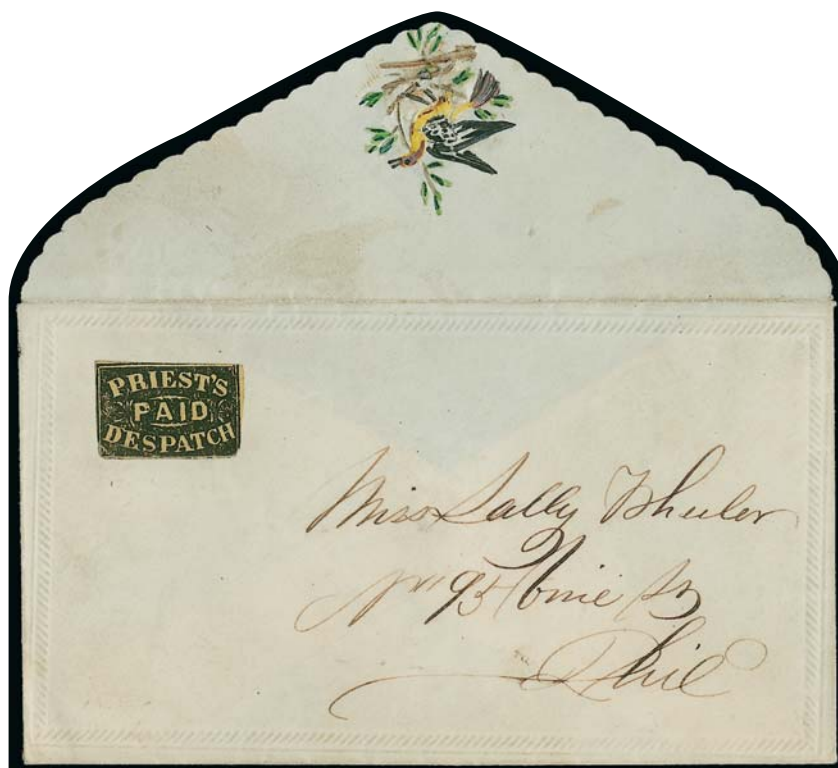 PRIEST'S
PAID
DESPATCH
Miss Sally Wheeler
No 95 Vine St
Phil